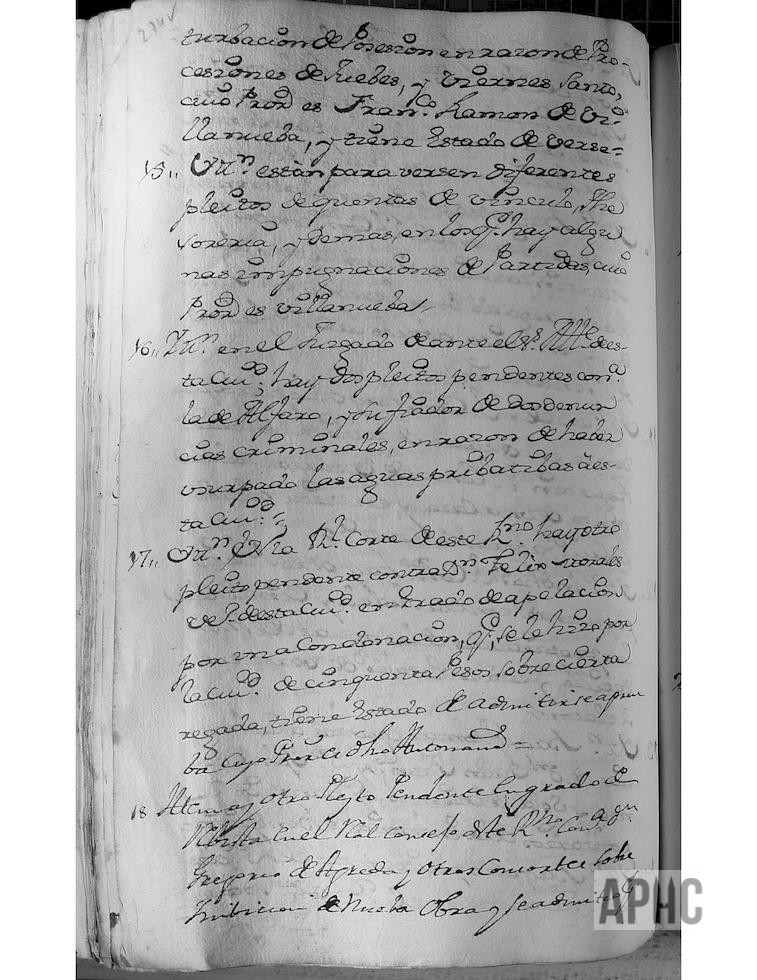 234v
turbacion de Posesion en razon de Pro-
cesiones de Juebes, y Viernes Santo,
cuio Pror es Franco. Ramon de Vi-
llanueba, y tiene Estado de Verse=
15,, Ittn estàn para versen diferentes
pleitos de quentas de vinculo, The
soreria, y demas, en los q. hay algu
nas impugnaciones de Partidas, cuio
Pror es Villanueba /
16,, Ittn. en el Juzgado de ante el Sr. Alle. de es-
ta Ciud. hay dos pleitos pendentes con
la de Alfaro, y su fiador de dos denun
cias criminales, en razon de haber
usurpado las aguas pribatibas à es-
ta Ciud.
17,, Ittn. En la Rl. Corte de este Rno. hay otro
pleito pendente contra Dn. Felix Morales
de esta Ciud. en Grado de apelacion
por una Condonacion, q. se le hizo por
la Ciud. de cinquenta Pesos, sobre cierta
regada, tiene Estado de admitirse a prue
ba Cuyo Pror es dho
18 Item ay otro Pleyto Pendente en grado de
Rebista en el Rl. Consejo de este Rno. con
Gregorio de Agreda y otros Consortes sobre
Inibicion de Nueba Obra y se admitio
APHC